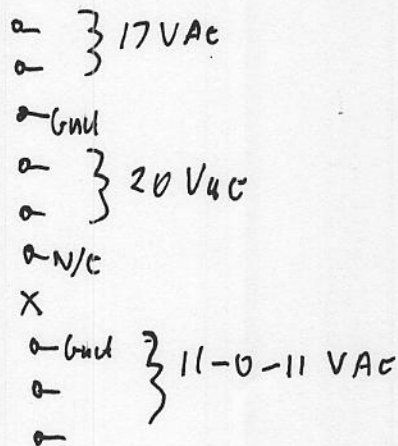 17 VAC
Gnd
20 VAC
N/C
X
Gnd
11-0-11 VAC